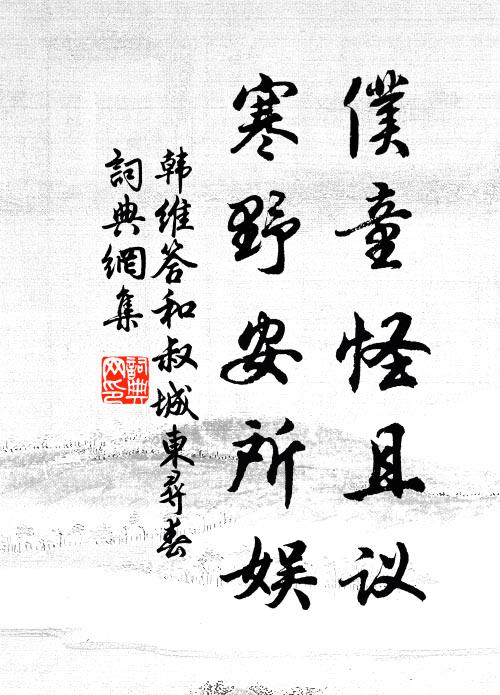 僕童怪且议
寒野安所娱
韩维答和叔城東尋春
詞典網集
詞典网印